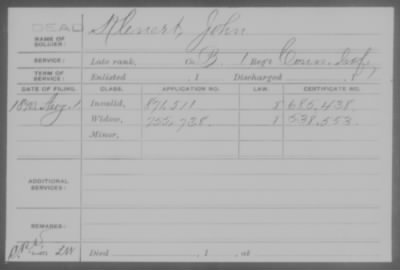 DEAD
NAME OF SOLDIER: Klenert, John
SERVICE: Late rank, Co. B, 1 Reg't Conn. Inf.,
TERM OF SERVICE: Enlisted , 1 Discharged , 1
DATE OF FILING. CLASS. APPLICATION NO. LAW. CERTIFICATE NO.
1890 Aug. 1 Invalid, 871,511 8 685,438
Widow, 755,738 8 538,553
Minor,
ADDITIONAL SERVICES:
REMARKS:
Died , 1 , at